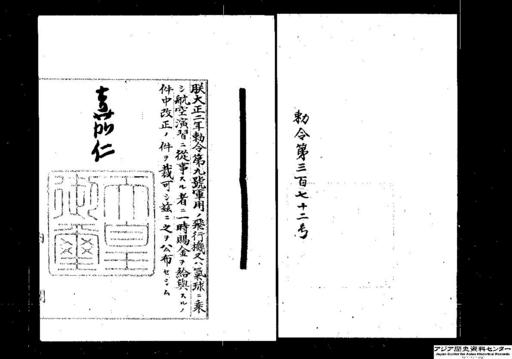 勅令第三百七十二号
朕大正二年勅令第九號軍用ノ飛行機又ハ氣球ニ乘
シ航空演習ニ從事スル者ニ一時賜金ヲ給與スルノ
件中改正ノ件ヲ裁可シ玆ニ之ヲ公布セシム
嘉仁
天皇御璽
内閣
アジア歴史資料センター
Japan Center for Asian Historical Records